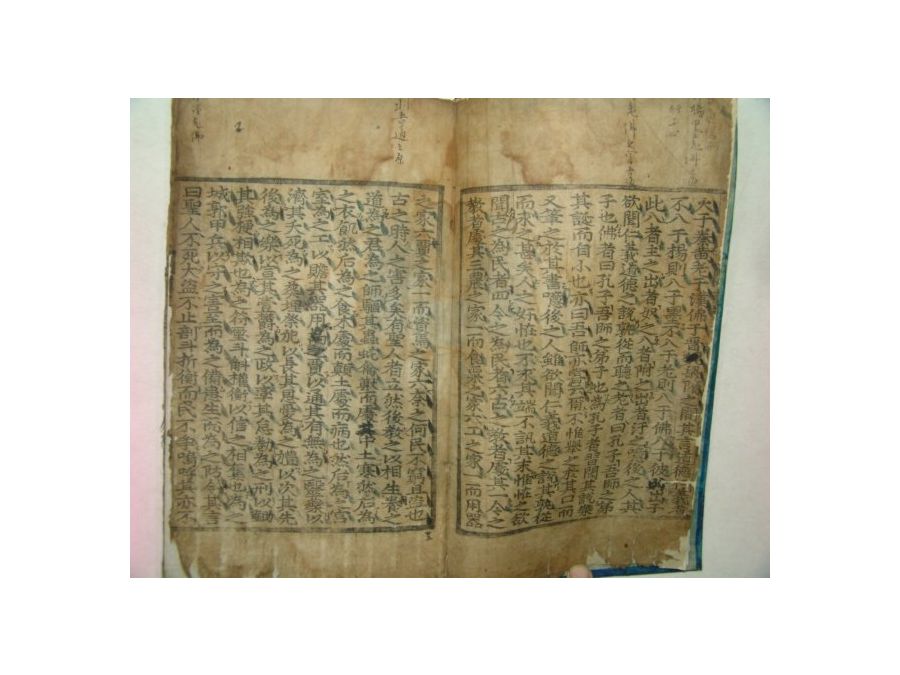 火于秦黃老于漢佛于晉魏梁隋之間其言道德仁義者
不入于楊則入于墨不入于老則入于佛入于彼必出于
此入者主之出者奴之入者附之出者汙之噫後之人其
欲聞仁義道德之說孰從而聽之老者曰孔子吾師之弟
子也佛者曰孔子吾師之弟子也為孔子者習聞其說樂
其誕而自小也亦曰吾師亦嘗云爾不惟舉之於其口而
又筆之於其書噫後之人雖欲聞仁義道德之說其孰從
而求之甚矣人之好怪也不求其端不訊其末惟怪之欲
聞古之為民者四今之為民者六古之教者處其一今之
教者處其三農之家一而食粟之家六工之家一而用器
之家六賈之家一而資焉之家六奈之何民不窮且盜也
古之時人之害多矣有聖人者立然後教之以相生養之
道為之君為之師驅其蟲蛇禽獸而處其中土寒然后為
之衣飢然后為之食木處而顚土處而病也然后為之宮
室為之工以贍其器用為之賈以通其有無為之醫藥以
濟其夭死為之葬埋祭祀以長其恩愛為之禮以次其先
後為之樂以宣其壹鬱為之政以率其怠勌為之刑以鋤
其强梗相欺也為之符璽斗斛權衡以信之相奪也為之
城郭甲兵以守之害至而為之備患生而為之防今其言
曰聖人不死大盜不止剖斗折衡而民不爭嗚呼其亦不